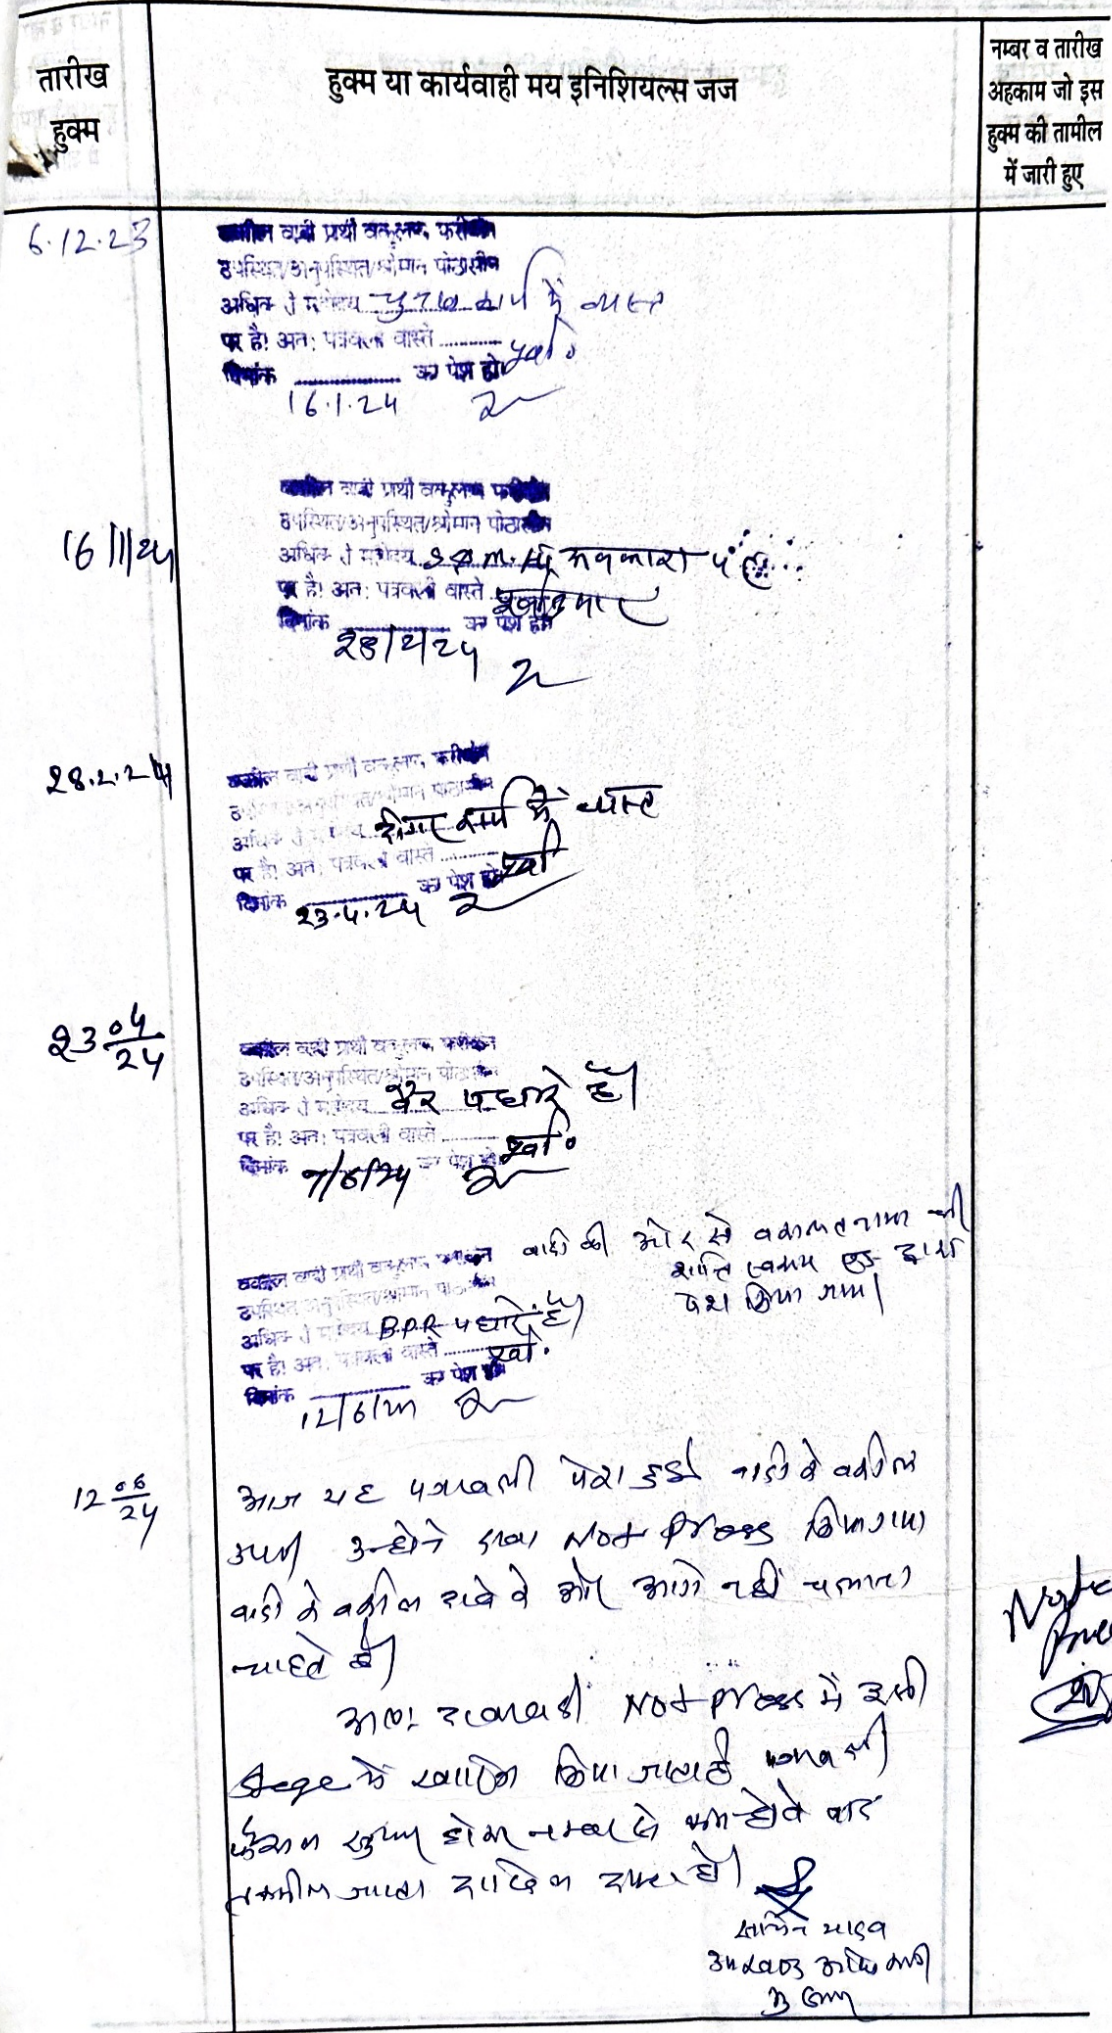 तारीख
हुक्म
हुक्म या कार्यवाही मय इनिशियल्स जज
नम्बर व तारीख
अहकाम जो इस
हुक्म की तामील
में जारी हुए
6.12.23
वकील वादी प्रार्थी वकुलाए फरीकैन
उपस्थित/अनुपस्थित/श्रीमान पीठासीन
अधिकारी महोदय चुनाव कार्य में व्यस्त
पर है। अतः पत्रावली वास्ते पूर्वा०
दिनांक को पेश हो।
16.1.24
16/1/24
वकील वादी प्रार्थी वकुलाए फरीकैन
उपस्थित/अनुपस्थित/श्रीमान पीठासीन
अधिकारी महोदय S.D.M. अवकाश प
पर है। अतः पत्रावली वास्ते
दिनांक को पेश हो
28/2/24
28.2.24
वकील वादी प्रार्थी वकुलाए फरीकैन
अधिकारी महोदय दीगर कार्य में व्यस्त
पर है। अतः पत्रावली वास्ते पूर्वा
दिनांक को पेश हो
23.4.24
23 04/24
वकील वादी प्रार्थी वकुलाए फरीकैन
उपस्थित/अनुपस्थित/श्रीमान पीठासीन
अधिकारी महोदय पधारे है।
पर है। अतः पत्रावली वास्ते पूर्वा०
दिनांक को पेश हो
7/6/24
वादी की ओर से वकालतनामा श्री
शान्ति स्वरूप द्वारा
पेश किया गया।
वकील वादी प्रार्थी वकुलाए
उपस्थित/अनुपस्थित/श्रीमान
अधिकारी महोदय पधारे है।
पर है। अतः पत्रावली वास्ते पूर्वा.
दिनांक को पेश हो
12/6/24
12 06/24
आज यह पत्रावली पेश हुई। वादी के वकील
उप० उन्होने दावा Not Press किया गया
वादी के वकील दावे को और आगे नहीं चलाना
चाहते है।
अतः दावा वादी Not Press में इसी
Stage में खारिज किया जाता है पत्रावली
फैसल शुमार होकर नम्बर से कम होवे बाद
तकमील जाब्ता दाखिल दफ्तर हो।
यादव
उपखण्ड अधिकारी
Not
Press